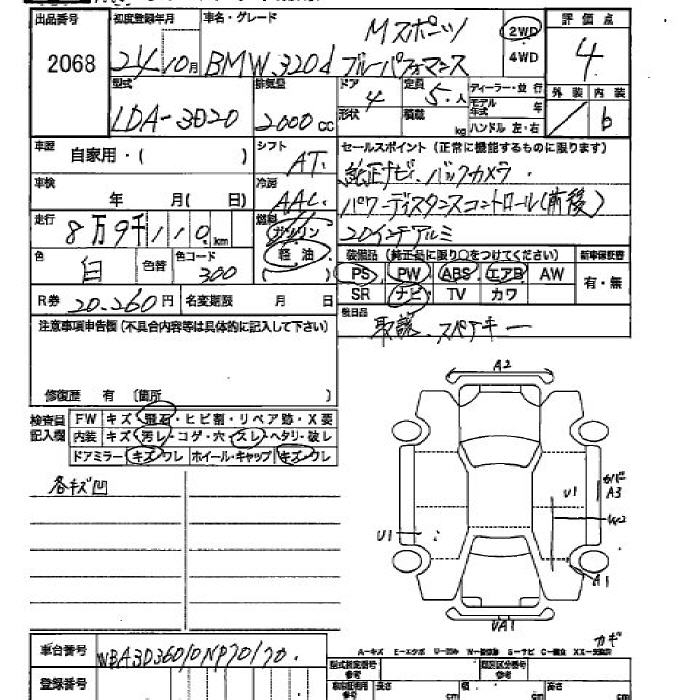 出品番号 初度登録年月 車名・グレード Mスポーツ 2WD 評価点
2068 24 10月 BMW 320d ブルーパフォマンス 4WD 4
型式 排気量 ドア 定員 ディーラー・並行 外装 内装
LDA-3D20 2000cc 4 5.人 モデル年式 年
形状 積載 kg ハンドル 左・右 b
車歴 自家用・( ) シフト AT. セールスポイント (正常に機能するものに限ります)
車検 年 月( 日) 冷房 AAC. 純正ナビ.バックカメラ
走行 8万9千110.km 燃料 ガソリン パワーディスタンスコントロール(前後)
軽油 20インチアルミ
色 白 色替 色コード 300 ( ) 装備品 (純正品に限り○をつけてください) 新車保証書
PS PW ABS エアB AW 有・無
R券 20.260円 名変期限 月 日 SR ナビ TV カワ
注意事項申告欄(不具合内容等は具体的に記入して下さい) 取説.スペアキー
修復歴 有 (箇所 )
検査員記入欄 FW キズ・飛石・ヒビ割・リペア跡・X要
内装 キズ・汚レ・コゲ・穴・スレ・ヘタリ・破レ
ドアミラー キズ・ワレ ホイール・キャップ キズ・ワレ
各キズ凹
A2
U1 A3
W2
U1
A1
車台番号 WBA3D36010NP70170.
登録番号
A-キズ E-エクボ U-凹み
型式指定番号 参考 類別区分番号 参考
長さ cm cm cm